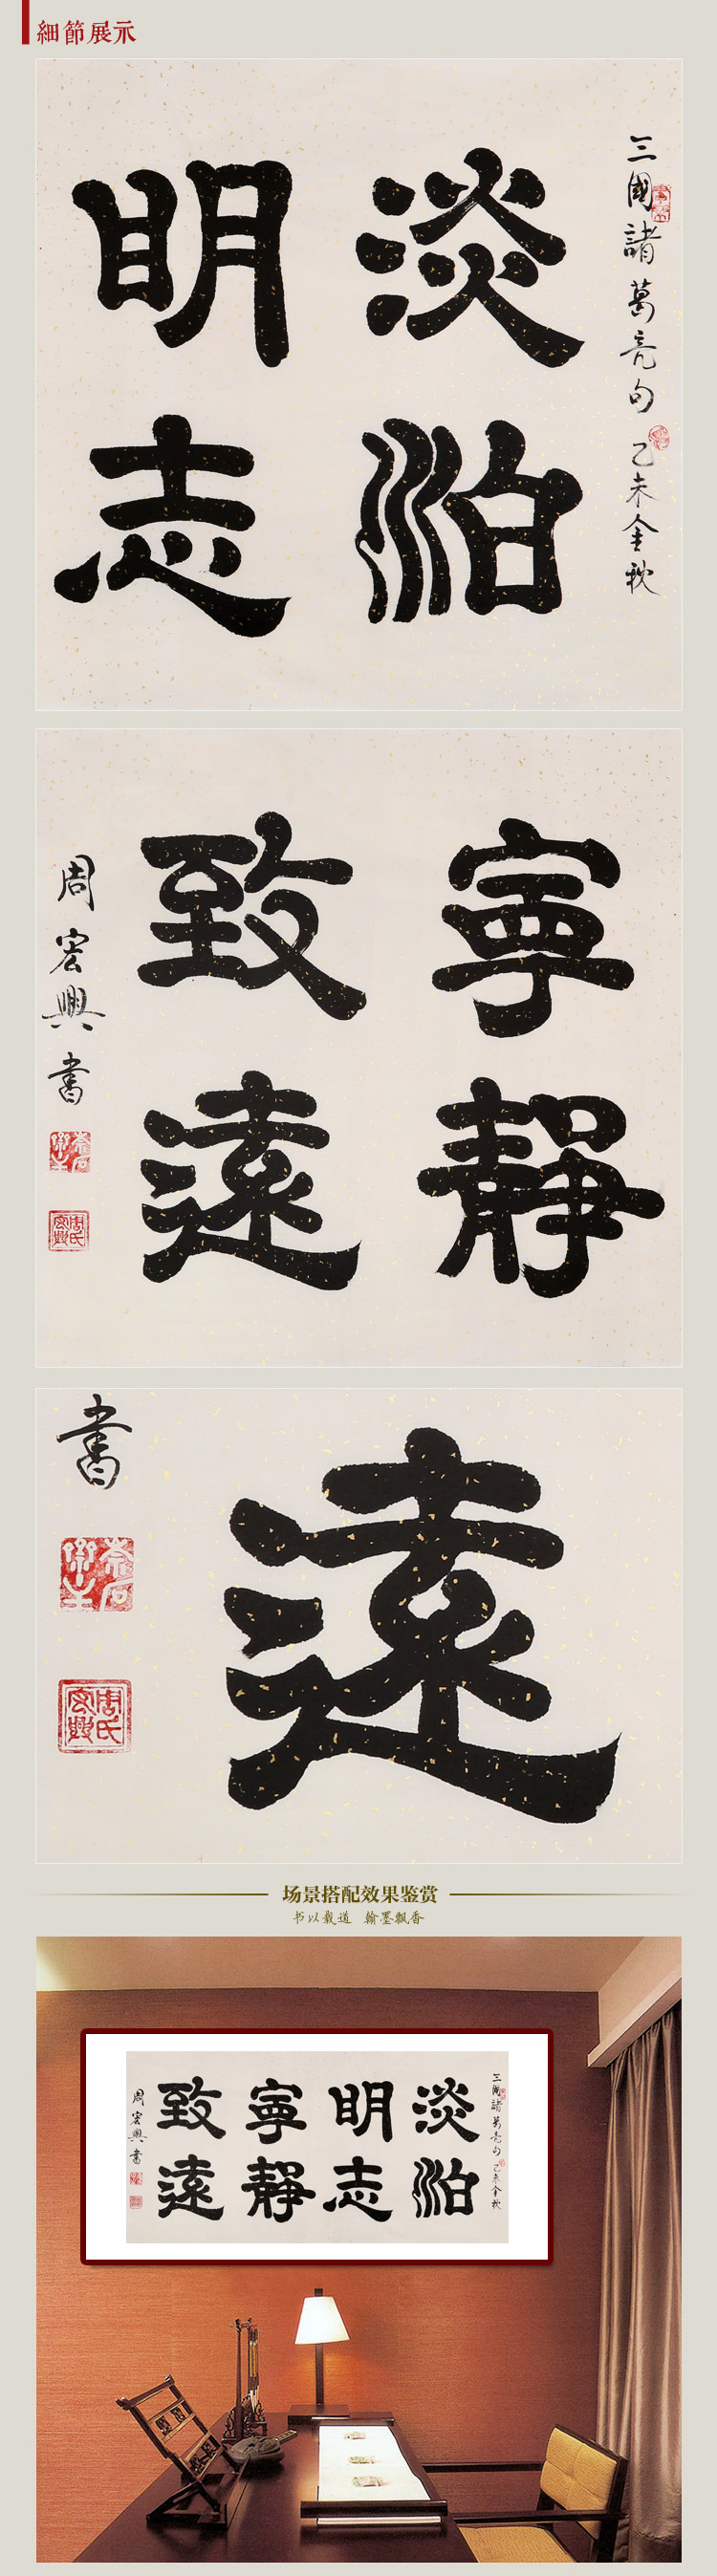 細節展示
三國諸葛亮句 乙未金秋
淡泊
明志
寧靜
致遠
周宏興書
奈石
齋主
周氏
宏興
書
遠
奈石
齋主
周氏
宏興
场景搭配效果鉴赏
书以载道 翰墨飘香
三國諸葛亮句 乙未金秋
淡泊
明志
寧靜
致遠
周宏興書